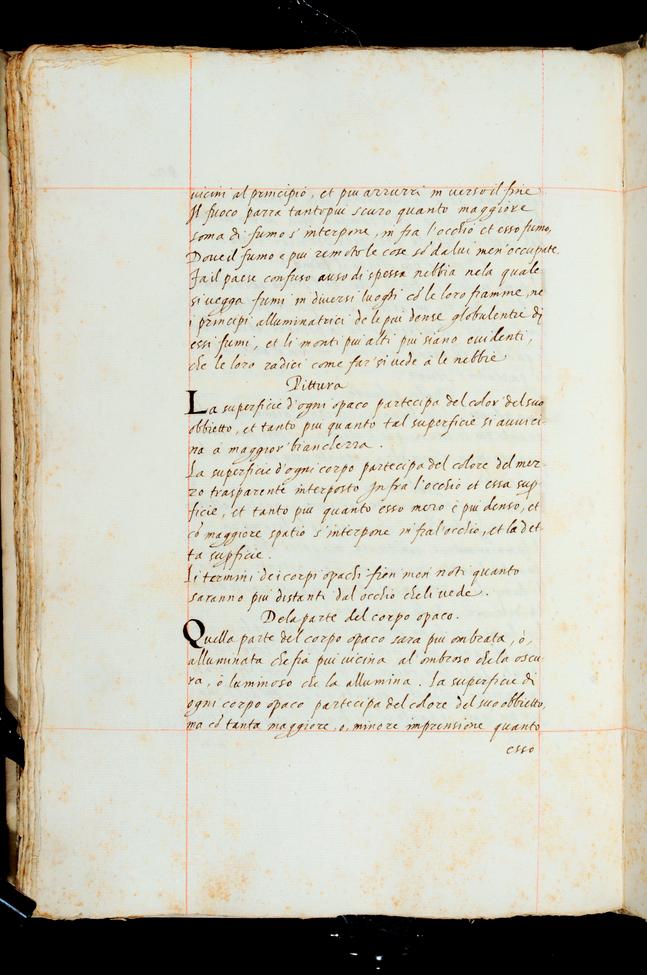 vicini al principio, et piu azzurri in verso il fine
Il fuoco parra tanto piu scuro quanto maggiore
soma di fumo s'interpone, in fra l'occhio et esso fumo,
Dove il fumo e piu remoto le cose sō da lui men' occupate,
Fa il paese confuso auso di spessa nebbia nela quale
si vegga fumi in diversi luoghi cō le loro fiamme, ne
i principi alluminatrici de le piu dense globulentie di
essi fumi, et li monti piu alti piu siano evidenti,
che le loro radici come far' si vede a le nebbie
Pittura
La superficie d'ogni opaco partecipa del color' del suo
obbietto, et tanto piu quanto tal superficie si avvici-
na a maggior' bianchezza.
La superficie d'ogni corpo partecipa del colore del mez-
zo trasparente interposto Infra l'occhio et essa sup̄
ficie, et tanto piu quanto esso mezo è piu denso, et
cō maggiore spatio s'interpone infra l'occhio, et la det-
ta sup̄ficie.
Li termini dei corpi opachi fien men noti quanto
saranno piu distanti dal occhio che li vede.
Dela parte del corpo opaco.
Quella parte del corpo opaco sara piu ombrata, ò,
alluminata che fia piu vicina al ombroso che la oscu-
ra, ò luminoso che la allumina. La superficie di
ogni corpo opaco partecipa del colore del suo obbietto,
ma cō tanta maggiore, o, minore imprensione quanto
esso